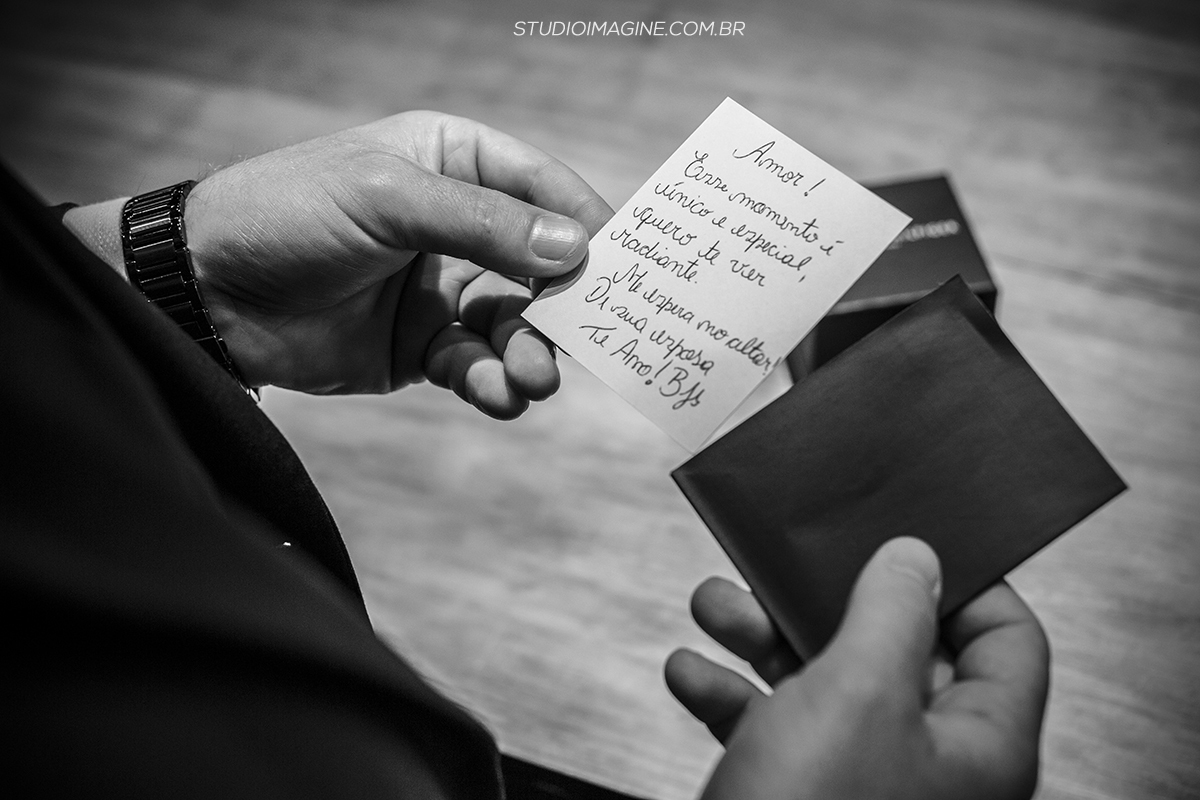 STUDIOIMAGINE.COM.BR
Amor!
Esse momento é
único e especial,
quero te ver
radiante.
Me espera no altar!
Di sua esposa
Te Amo! Bjs